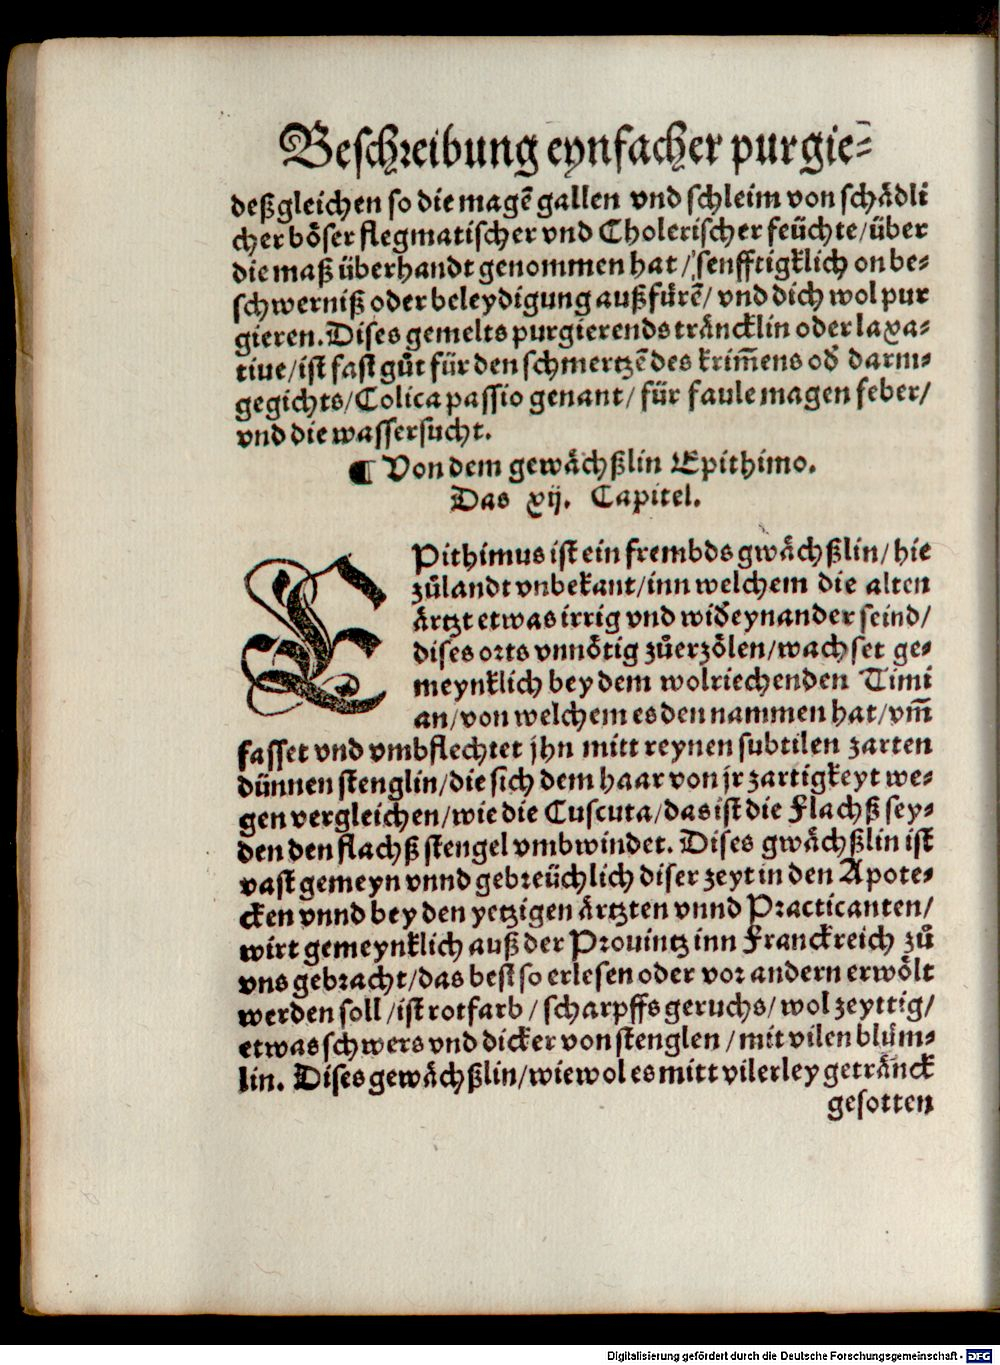 Beſchreibung eynfacher purgie⸗
deßgleichen ſo die magē gallen vnd ſchleim von ſchaͤdli
cher boͤſer flegmatiſcher vnd Choleriſcher feüchte/über
die maß überhandt genommen hat/ſenfftigklich on be⸗
ſchwerniß oder beleydigung außfürē/ vnd dich wol pur
gieren. Diſes gemelts purgierends traͤncklin oder laxa⸗
tiue/iſt faſt guͦt für den ſchmertzē des krim̄ens od' darm⸗
gegichts/Colica paſſio genant/ für faule magen feber/
vnd die waſſerſucht.
¶ Von dem gewaͤchßlin Epithimo.
Das xij. Capitel.
EPithimus iſt ein frembds gwaͤchßlin/ hie
zuͦlandt vnbekant/inn welchem die alten
aͤrtzt etwas irrig vnd wid'eynander ſeind/
diſes orts vnnoͤtig zuͦerzoͤlen/wachſet ge⸗
meynklich bey dem wolriechenden Timi
an/von welchem es den nammen hat/vm̄
faſſet vnd vmbflechtet jhn mitt reynen ſubtilen zarten
dünnen ſtenglin/die ſich dem haar von jr zartigkeyt we⸗
gen vergleichen/wie die Cuſcuta/das iſt die Flachß ſey⸗
den den flachß ſtengel vmbwindet. Diſes gwaͤchßlin iſt
vaſt gemeyn vnnd gebreüchlich diſer zeyt in den Apote⸗
cken vnnd bey den yetzigen aͤrtzten vnnd Practicanten/
wirt gemeynklich auß der Prouintz inn Franckreich zuͦ
vns gebracht/das beſt ſo erleſen oder vor andern erwoͤlt
werden ſoll /iſt rotfarb / ſcharpffs geruchs/ wol zeyttig/
etwas ſchwers vnd dicker von ſtenglen /mit vilen bluͤm⸗
lin. Diſes gewaͤchßlin/wiewol es mitt vilerley getraͤnck
geſotten
Digitalisierung gefördert durch die Deutsche Forschungsgemeinschaft - DFG